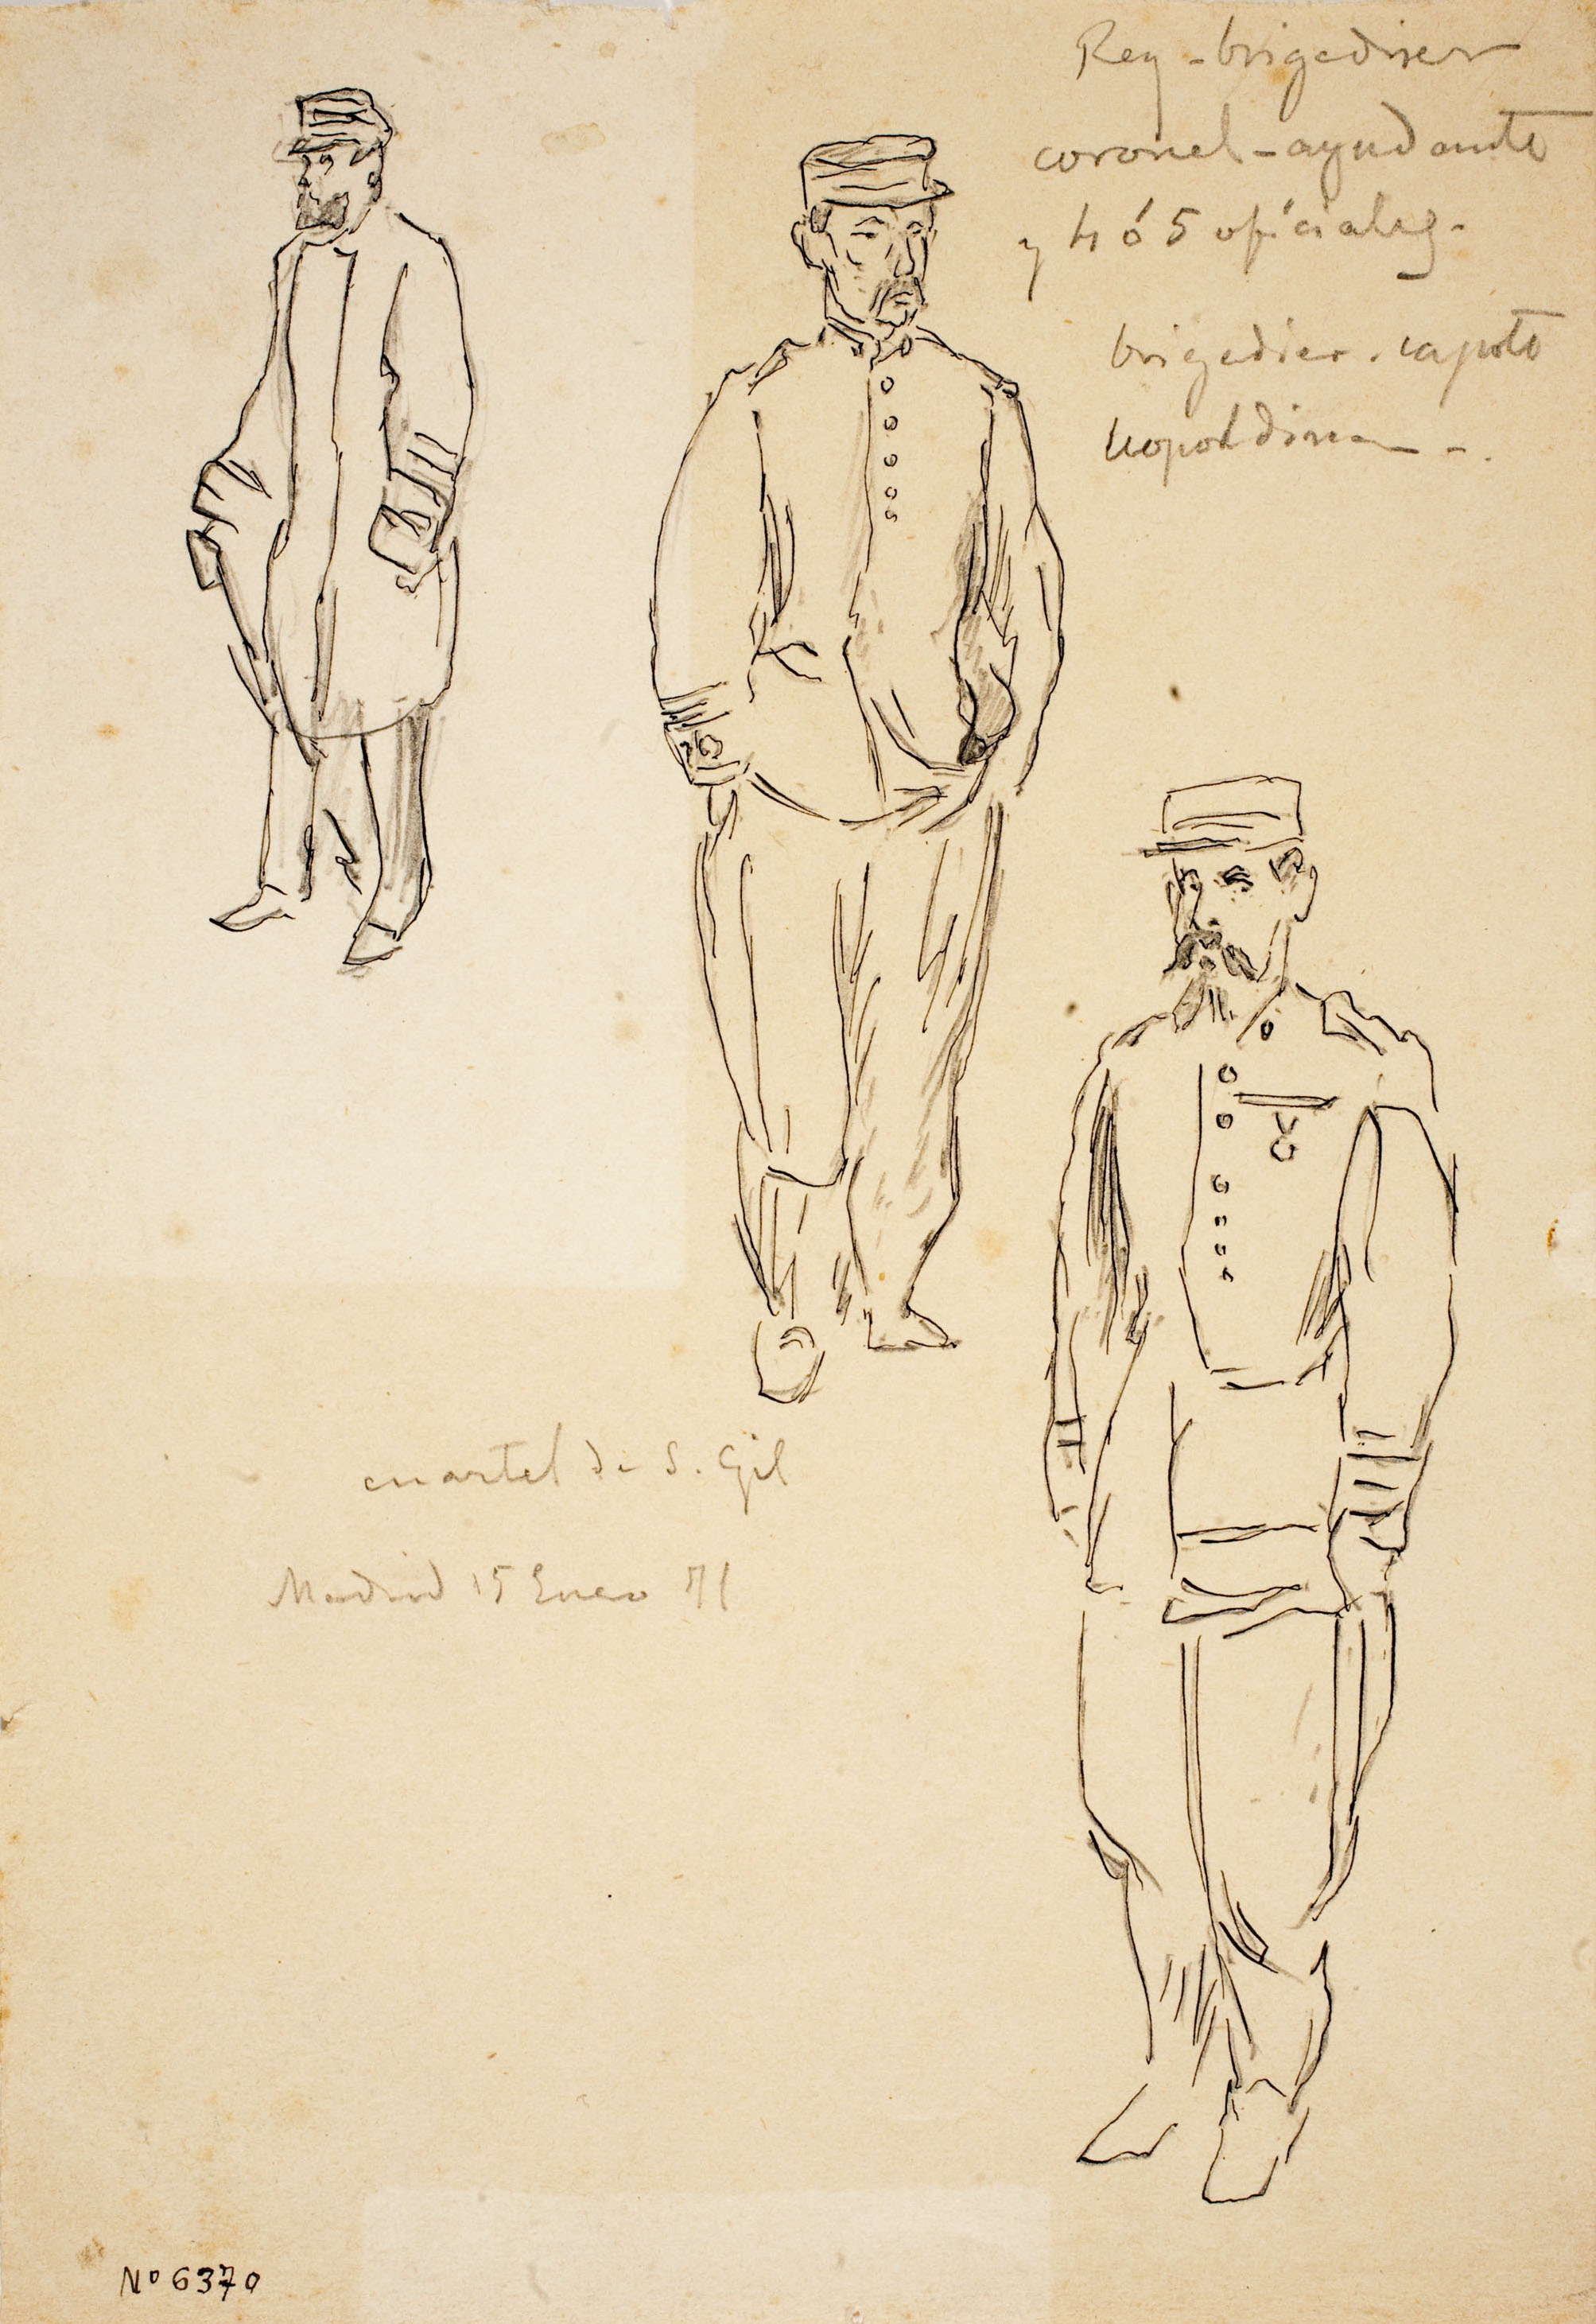 Rey - brigadier
coronel - ayudante
y 4 ó 5 oficiales -
brigadier. capote
leopoldina - .
cuartel de S. Gil
Madrid 15 Enero 71
Nº 6370